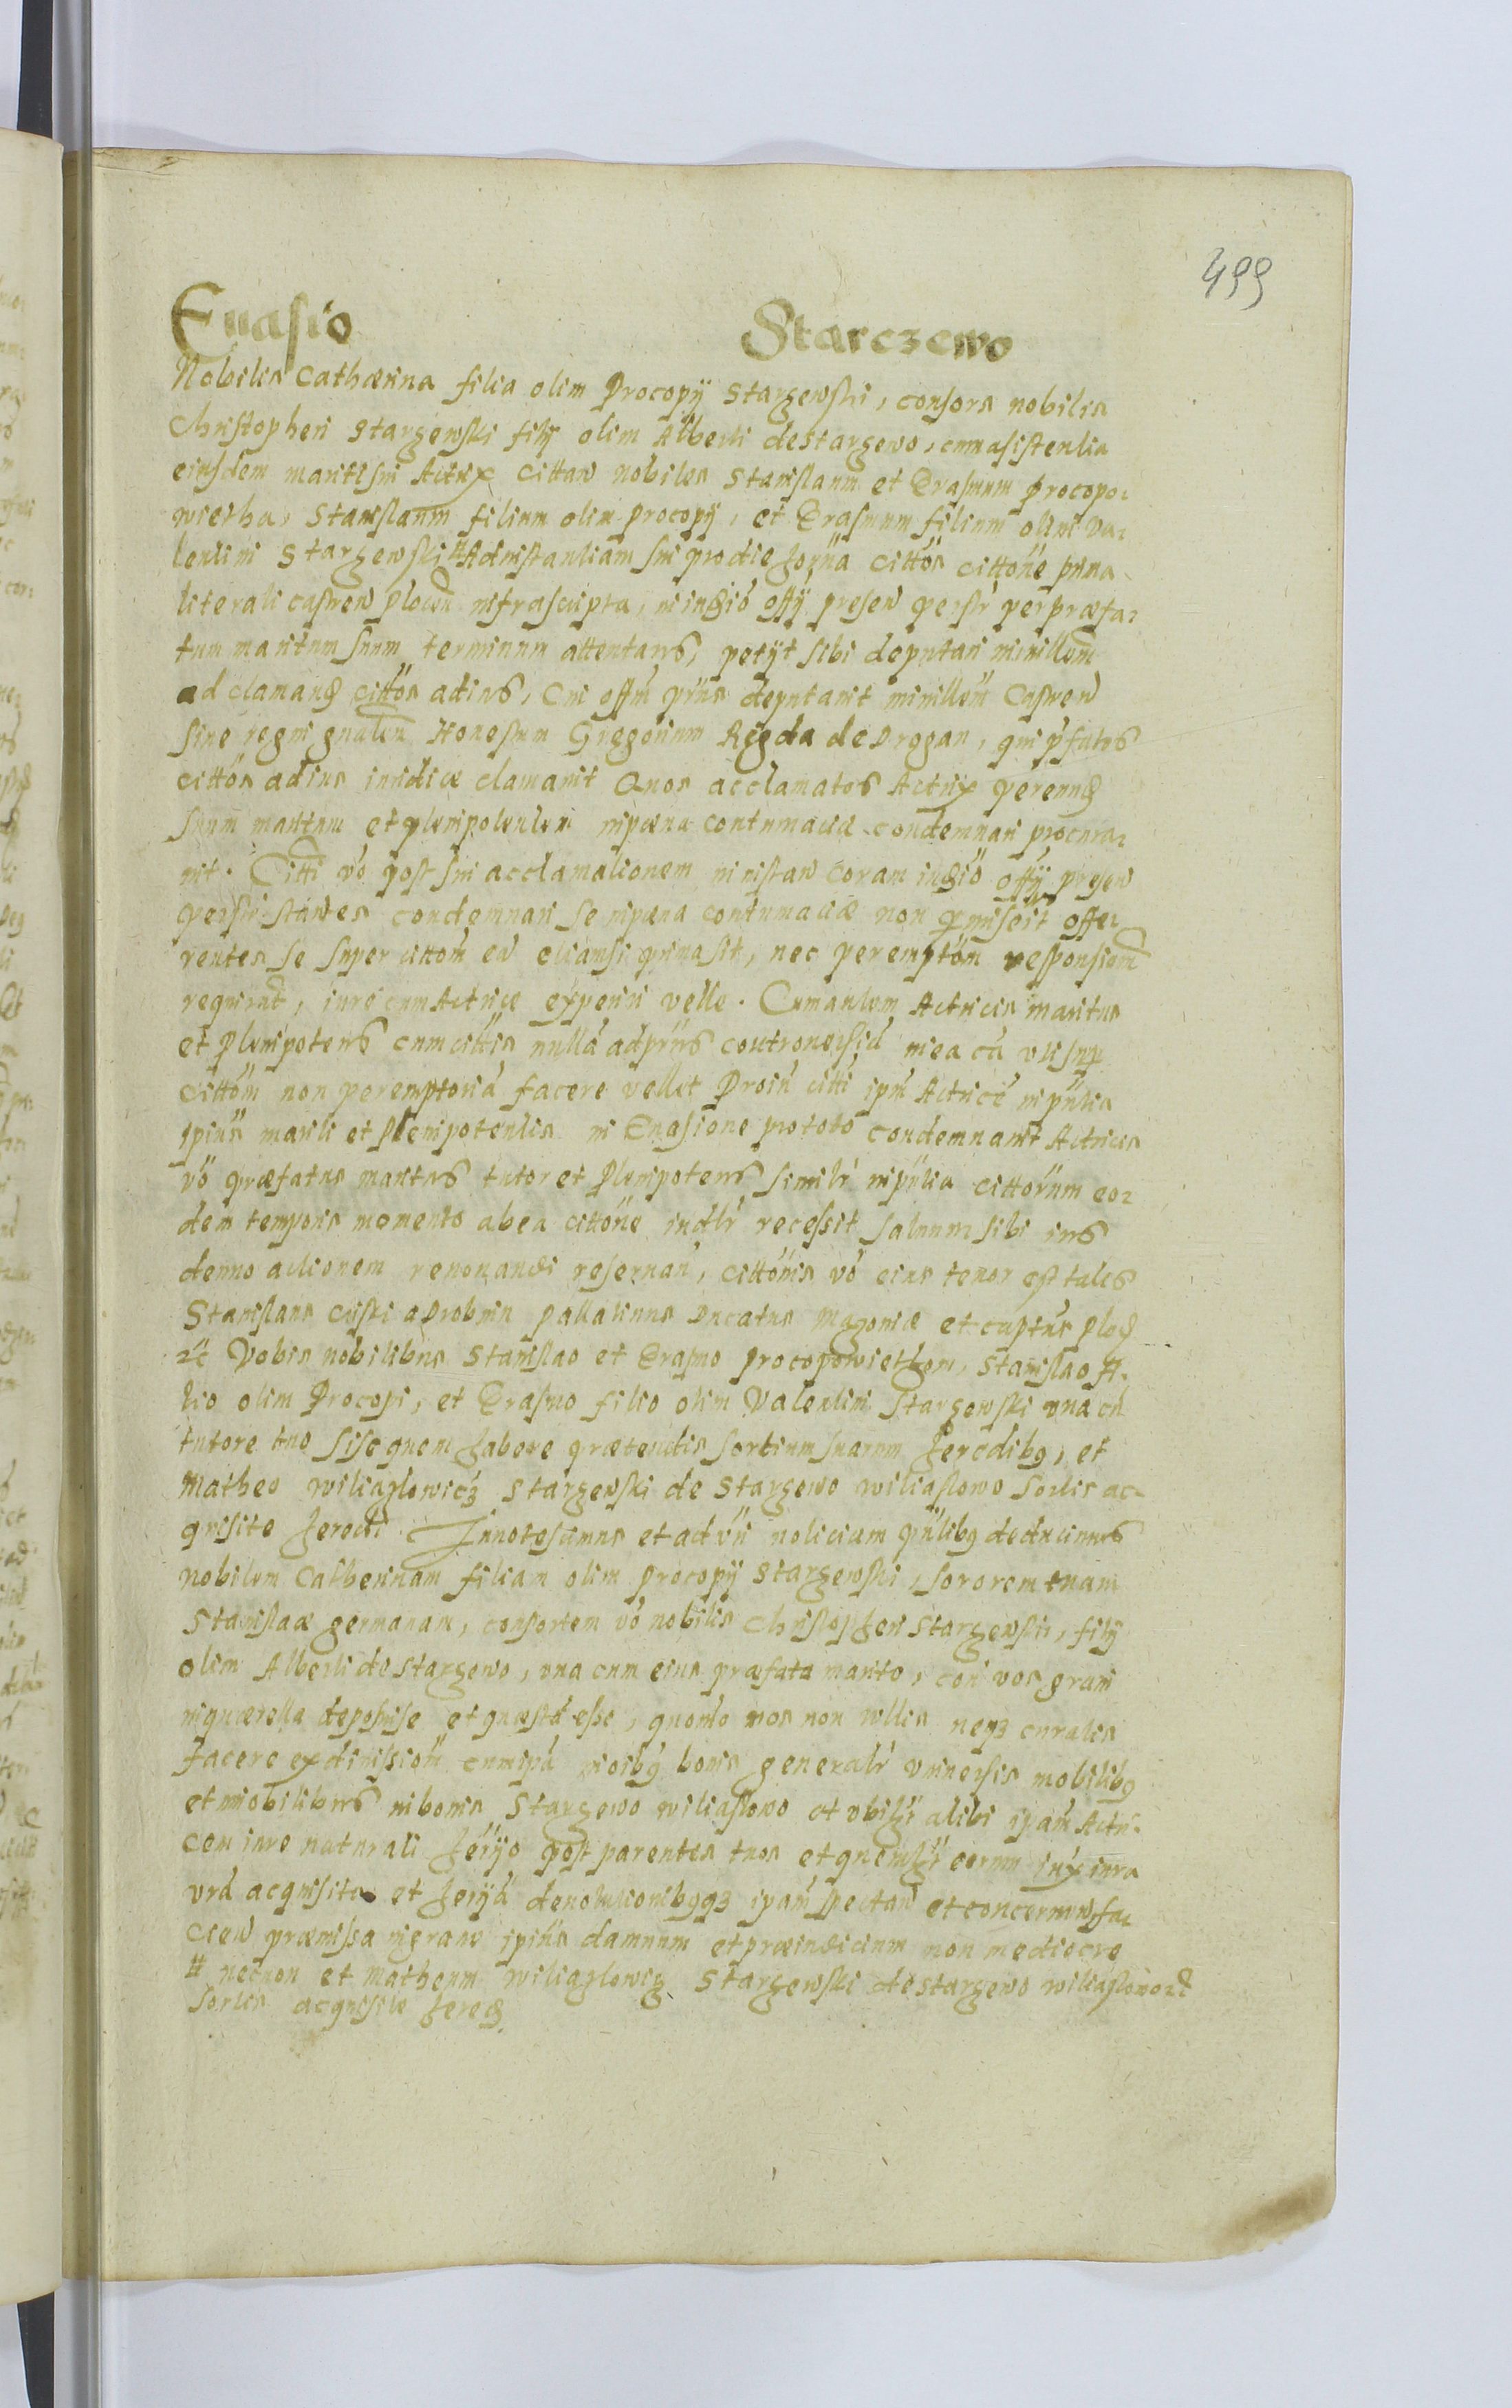 499
Euasio Starczewo
Nobilis Cathærina filia olim Procopÿ Stargewski, consors nobilis
Christopheri Stargewski filÿ olim Alberti de Stargewo, cum asistentia
eiusdem mariti sui Actrix cittaw nobiles Stanislaum et Erasmum Procopo-
wietha, Stanislaum filium olim Procopÿ, et Erasmum filium olim Va-
lentini Stargewski # Ad instantiam sui pro die horna cittos cittone prima
literali castren Plocen infrascripta, in iudio offÿ presen persr per præfa-
tum maritum suum terminum attentans, petÿt sibi deputari minillem
ad clamand cittos adius, Cui offm prius deputauit minillem Castren
siue regni gnalem Honestum Gregorium Rigda de Drogan, qui pfatos
cittos adius iuridice clamauit Quos acclamatos Actrix per eund
suum maritum et plenipotentem in pæna contumaciæ condemnari procura-
uit. Citti vo post sui acclamationem in instan coram iudio offÿ presen
persr stantes condemnari se in pæna contumaciæ non pmiserit offe-
rentes se super cittom ea etiamsi prima sit, nec peremptom responsiom
requirat, iure cum Actrice experiri velle. Cum autem Actricis maritus
et Plenipotens cum cittis nulla ad prns controuersia in ea ca vti sup
cittom non peremptoria facere vellet Proin citti ipm Actrice in pntia
ipius mariti et Plenipotentis in Euasione pro toto condemnauit Actricis
vo præfatus maritus tutor et Plenipotens similr in pntia cittorum eo-
dem temporis momento ab ea cittone indlr recessit saluum sibi ius
denuo actionem renouandi reseruan, cittonis vo eius tenor est talis
Stanislaus Criski a Drobnin Pallatinus Ducatus Mazouiæ et captus Ploc
zc Vobis nobilibus Stanislao et Erasmo Procopowiethom, Stanislao fi-
lio olim Procopi, et Erasmo filio olim Valentini Stargewski vna cu
tutore tuo si se quem habere prætendis sortium suarum heredibq, et
Matheo Wiliaglowicz Stargewski de Stargewo Wiliaslowo sortis ac-
quisite heredi Innotescimus et ad vn noticiam pntibq deducimus
nobilem Catherinam filiam olim Procopÿ Stargewski, sororem tuam
Stanislaæ germanam, consortem vo nobilis Christopheri Stargewski, filÿ
olim Alberti de Stargewo, vna cum eius præfata marito, con vos graui
in querella deposuise et quæsta esse, quomo vos non vultis neqz curatis
facere ex diuisiom cum ipa in oibq bonis generalr vniuersis mobilibq
et immobilibus in bonis Stargewo Wiliaslowo et vbiuis alibi ipam Actri-
cem iure naturali herÿo post parentes tuos et quemlit eorum iux iura
vra acquisita et herÿa deuolutionibqqz ipam spectan et concernen fa-
cien præmissa in graue ipius damnum et præiudicium non mediocre
# necnon et Matheum Wiliaglowicz Stargewski de Stargewo Wiliaslowo zd
sortis acquisite hered